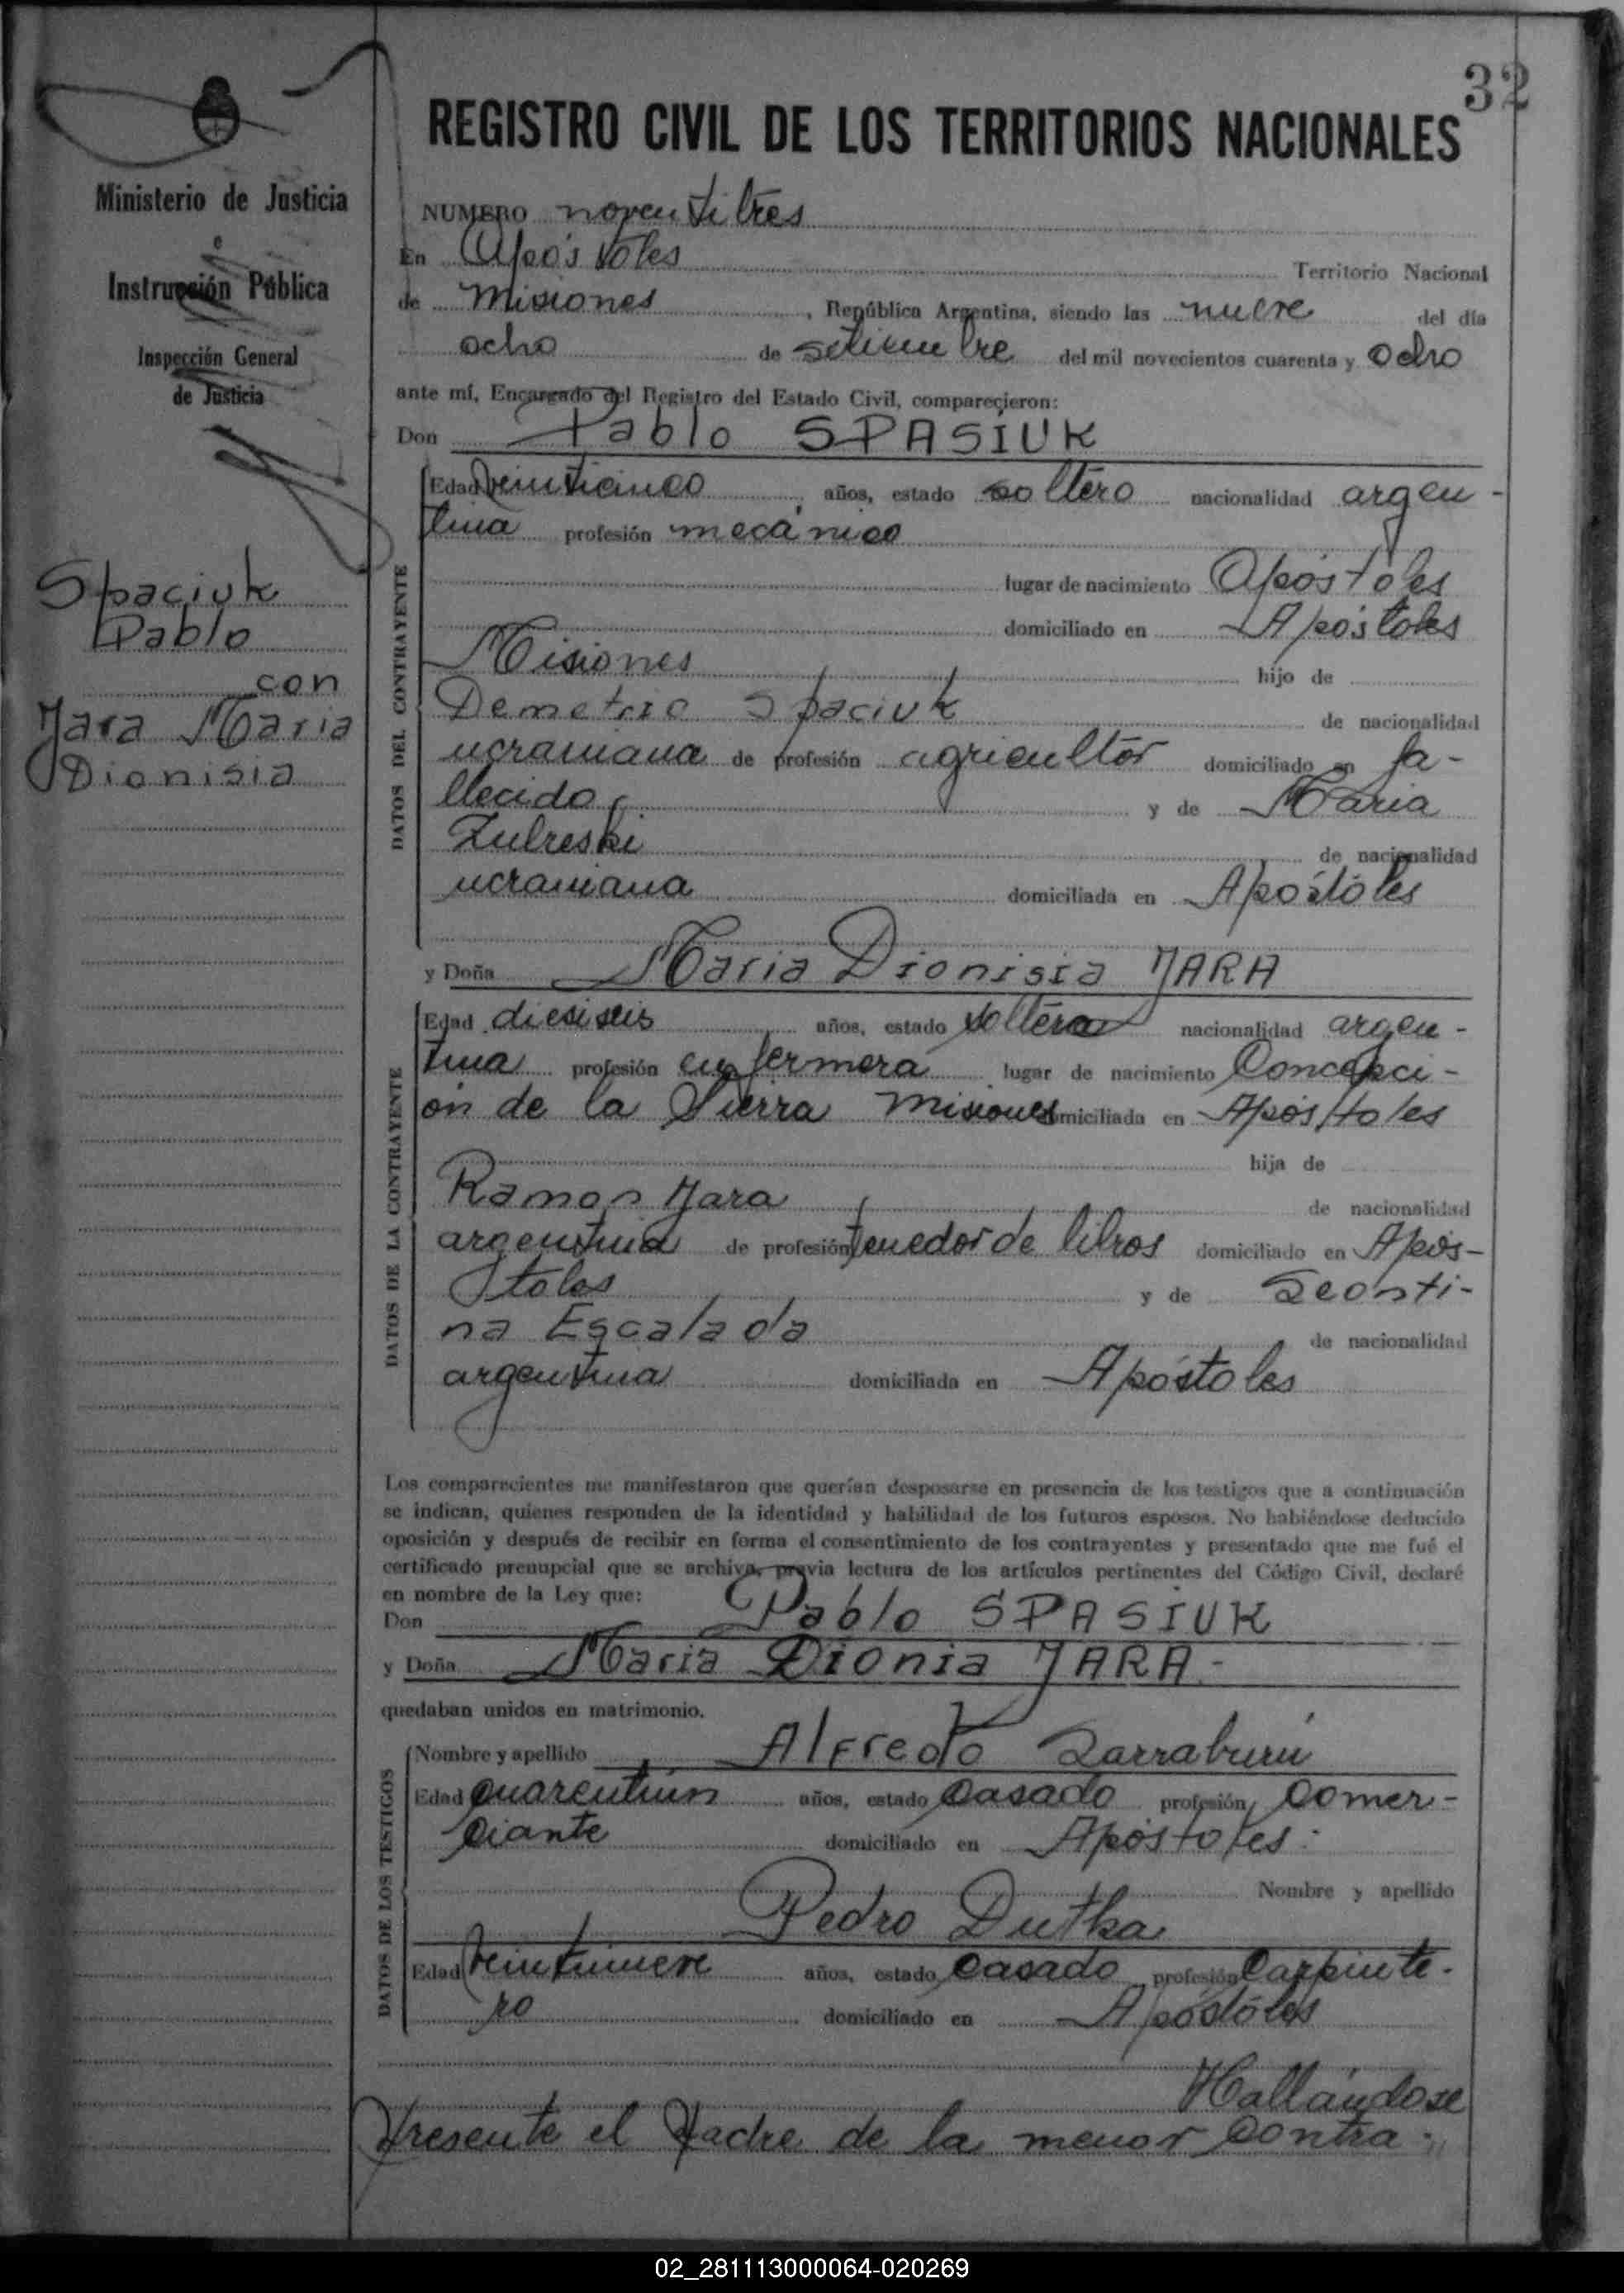 32
REGISTRO CIVIL DE LOS TERRITORIOS NACIONALES
Ministerio de Justicia
e
Instrucción Pública
Inspección General
de Justicia
Spaciuk
Pablo
con
Jara Maria
Dionisia
NUMERO noventitres
En Apóstoles Territorio Nacional
de Misiones, República Argentina, siendo las nueve del día
ocho de setiembre del mil novecientos cuarenta y ocho
ante mí, Encargado del Registro del Estado Civil, comparecieron:
Don Pablo SPASIUK
DATOS DEL CONTRAYENTE
Edad veinticinco años, estado soltero nacionalidad argen-
tina profesión mecánico
lugar de nacimiento Apóstoles
domiciliado en Apóstoles
Misiones hijo de
Demetrio Spaciuk de nacionalidad
ucraniana de profesión agricultor domiciliado en fa-
llecido y de Maria
de nacionalidad
ucraniana domiciliada en Apóstoles
y Doña Maria Dionisia JARA
DATOS DE LA CONTRAYENTE
Edad diesiseis años, estado soltera nacionalidad argen-
tina profesión enfermera lugar de nacimiento Concepci-
ón de la Sierra Misiones domiciliada en Apóstoles
hija de
Ramon Jara de nacionalidad
argentina de profesión tenedor de libros domiciliado en Após-
toles y de Leonti-
na Escalada de nacionalidad
argentina domiciliada en Apóstoles
Los comparecientes me manifestaron que querían desposarse en presencia de los testigos que a continuación
se indican, quienes responden de la identidad y habilidad de los futuros esposos. No habiéndose deducido
oposición y después de recibir en forma el consentimiento de los contrayentes y presentado que me fué el
certificado prenupcial que se archiva, previa lectura de los artículos pertinentes del Código Civil, declaré
en nombre de la Ley que:
Don Pablo SPASIUK
y Doña Maria Dionia JARA-
quedaban unidos en matrimonio.
DATOS DE LOS TESTIGOS
Nombre y apellido Alfredo Larraburú
Edad cuarentiún años, estado casado profesión comer-
ciante domiciliado en Apóstoles.
Nombre y apellido
Pedro Dutka
Edad veintinueve años, estado casado profesión carpinte-
ro domiciliado en Apóstoles
Hallándose
presente el padre de la menor contra-
02_281113000064-020269